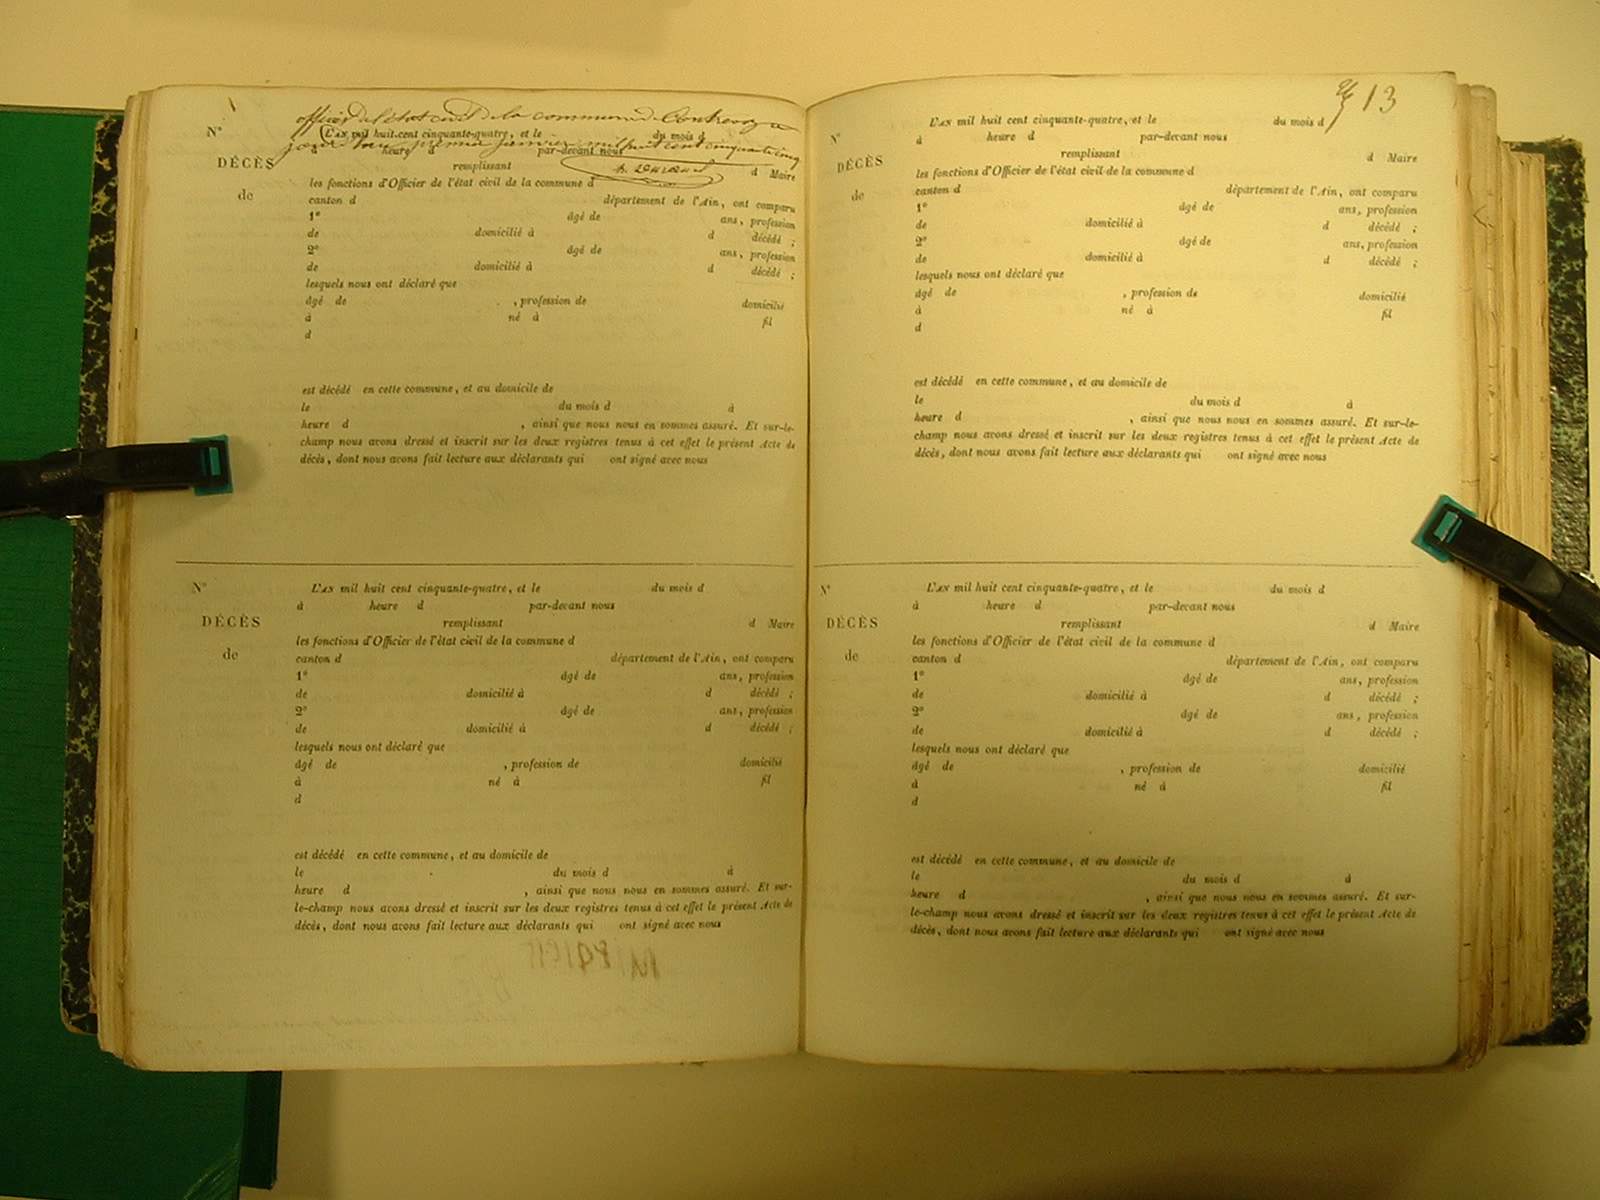 officier de l'état civil de la commune de Contrevoz a
N° L'AN mil huit cent cinquante-quatre, et le du mois d
jour premier janvier mil huit cent cinquante cinq
à heure d par-devant nous
DÉCÈS remplissant d Maire
les fonctions d'Officier de l'état civil de la commune d
de canton d département de l'Ain, ont comparu
1° âgé de ans, profession
de domicilié à d décédé ;
2° âgé de ans, profession
de domicilié à d décédé ;
lesquels nous ont déclaré que
âgé de , profession de domicilié
à né à fil
d
est décédé en cette commune, et au domicile de
le du mois d à
heure d , ainsi que nous nous en sommes assuré. Et sur-le-
champ nous avons dressé et inscrit sur les deux registres tenus à cet effet le présent Acte de
décès, dont nous avons fait lecture aux déclarants qui ont signé avec nous
N° L'AN mil huit cent cinquante-quatre, et le du mois d
à heure d par-devant nous
DÉCÈS remplissant d Maire
les fonctions d'Officier de l'état civil de la commune d
de canton d département de l'Ain, ont comparu
1° âgé de ans, profession
de domicilié à d décédé ;
2° âgé de ans, profession
de domicilié à d décédé ;
lesquels nous ont déclaré que
âgé de , profession de domicilié
à né à fil
d
est décédé en cette commune, et au domicile de
le du mois d à
heure d , ainsi que nous nous en sommes assuré. Et sur-
le-champ nous avons dressé et inscrit sur les deux registres tenus à cet effet le présent Acte de
décès, dont nous avons fait lecture aux déclarants qui ont signé avec nous
13
N° L'AN mil huit cent cinquante-quatre, et le du mois d
à heure d par-devant nous
DÉCÈS remplissant d Maire
les fonctions d'Officier de l'état civil de la commune d
de canton d département de l'Ain, ont comparu
1° âgé de ans, profession
de domicilié à d décédé ;
2° âgé de ans, profession
de domicilié à d décédé ;
lesquels nous ont déclaré que
âgé de , profession de domicilié
à né à fil
d
est décédé en cette commune, et au domicile de
le du mois d à
heure d , ainsi que nous nous en sommes assuré. Et sur-le-
champ nous avons dressé et inscrit sur les deux registres tenus à cet effet le présent Acte de
décès, dont nous avons fait lecture aux déclarants qui ont signé avec nous
N° L'AN mil huit cent cinquante-quatre, et le du mois d
à heure d par-devant nous
DÉCÈS remplissant d Maire
les fonctions d'Officier de l'état civil de la commune d
de canton d département de l'Ain, ont comparu
1° âgé de ans, profession
de domicilié à d décédé ;
2° âgé de ans, profession
de domicilié à d décédé ;
lesquels nous ont déclaré que
âgé de , profession de domicilié
à né à fil
d
est décédé en cette commune, et au domicile de
le du mois d à
heure d , ainsi que nous nous en sommes assuré. Et sur-
le-champ nous avons dressé et inscrit sur les deux registres tenus à cet effet le présent Acte de
décès, dont nous avons fait lecture aux déclarants qui ont signé avec nous